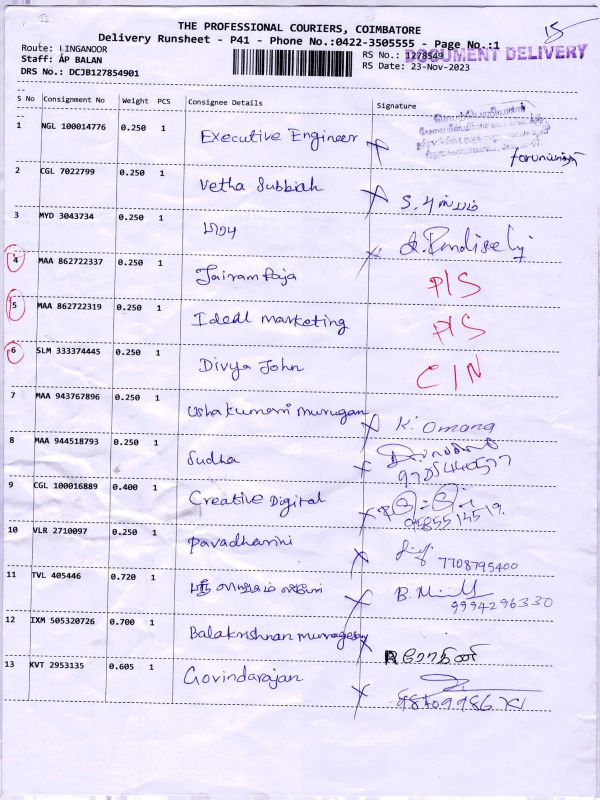 15
THE PROFESSIONAL COURIERS, COIMBATORE
Delivery Runsheet - P41 - Phone No.:0422-3505555 - Page No.:1
Route: LINGANOOR
RS No.: 1278549
DOCUMENT DELIVERY
Staff: AP BALAN
RS Date: 23-Nov-2023
DRS No.: DCJB127854901
S No Consignment No Weight PCS Consignee Details Signature
1 NGL 100014776 0.250 1 Executive Engineer
2 CGL 7022799 0.250 1 Vetha Subbiah
3 MYD 3043734 0.250 1
4 MAA 862722337 0.250 1 Jairam Raja P/S
5 MAA 862722319 0.250 1 Ideal marketing P/S
6 SLM 333374445 0.250 1 Divya John C/N
7 MAA 943767896 0.250 1 Ushakumari murugan K. Omana
8 MAA 944518793 0.250 1 Sudha
9 CGL 100016889 0.400 1 Creative Digital
10 VLR 2710097 0.250 1 Pavadharini 7708795400
11 TVL 405446 0.720 1 9994296330
12 IXM 505320726 0.700 1 Balakrishnan murugesan
13 KVT 2953135 0.605 1 Govindarajan